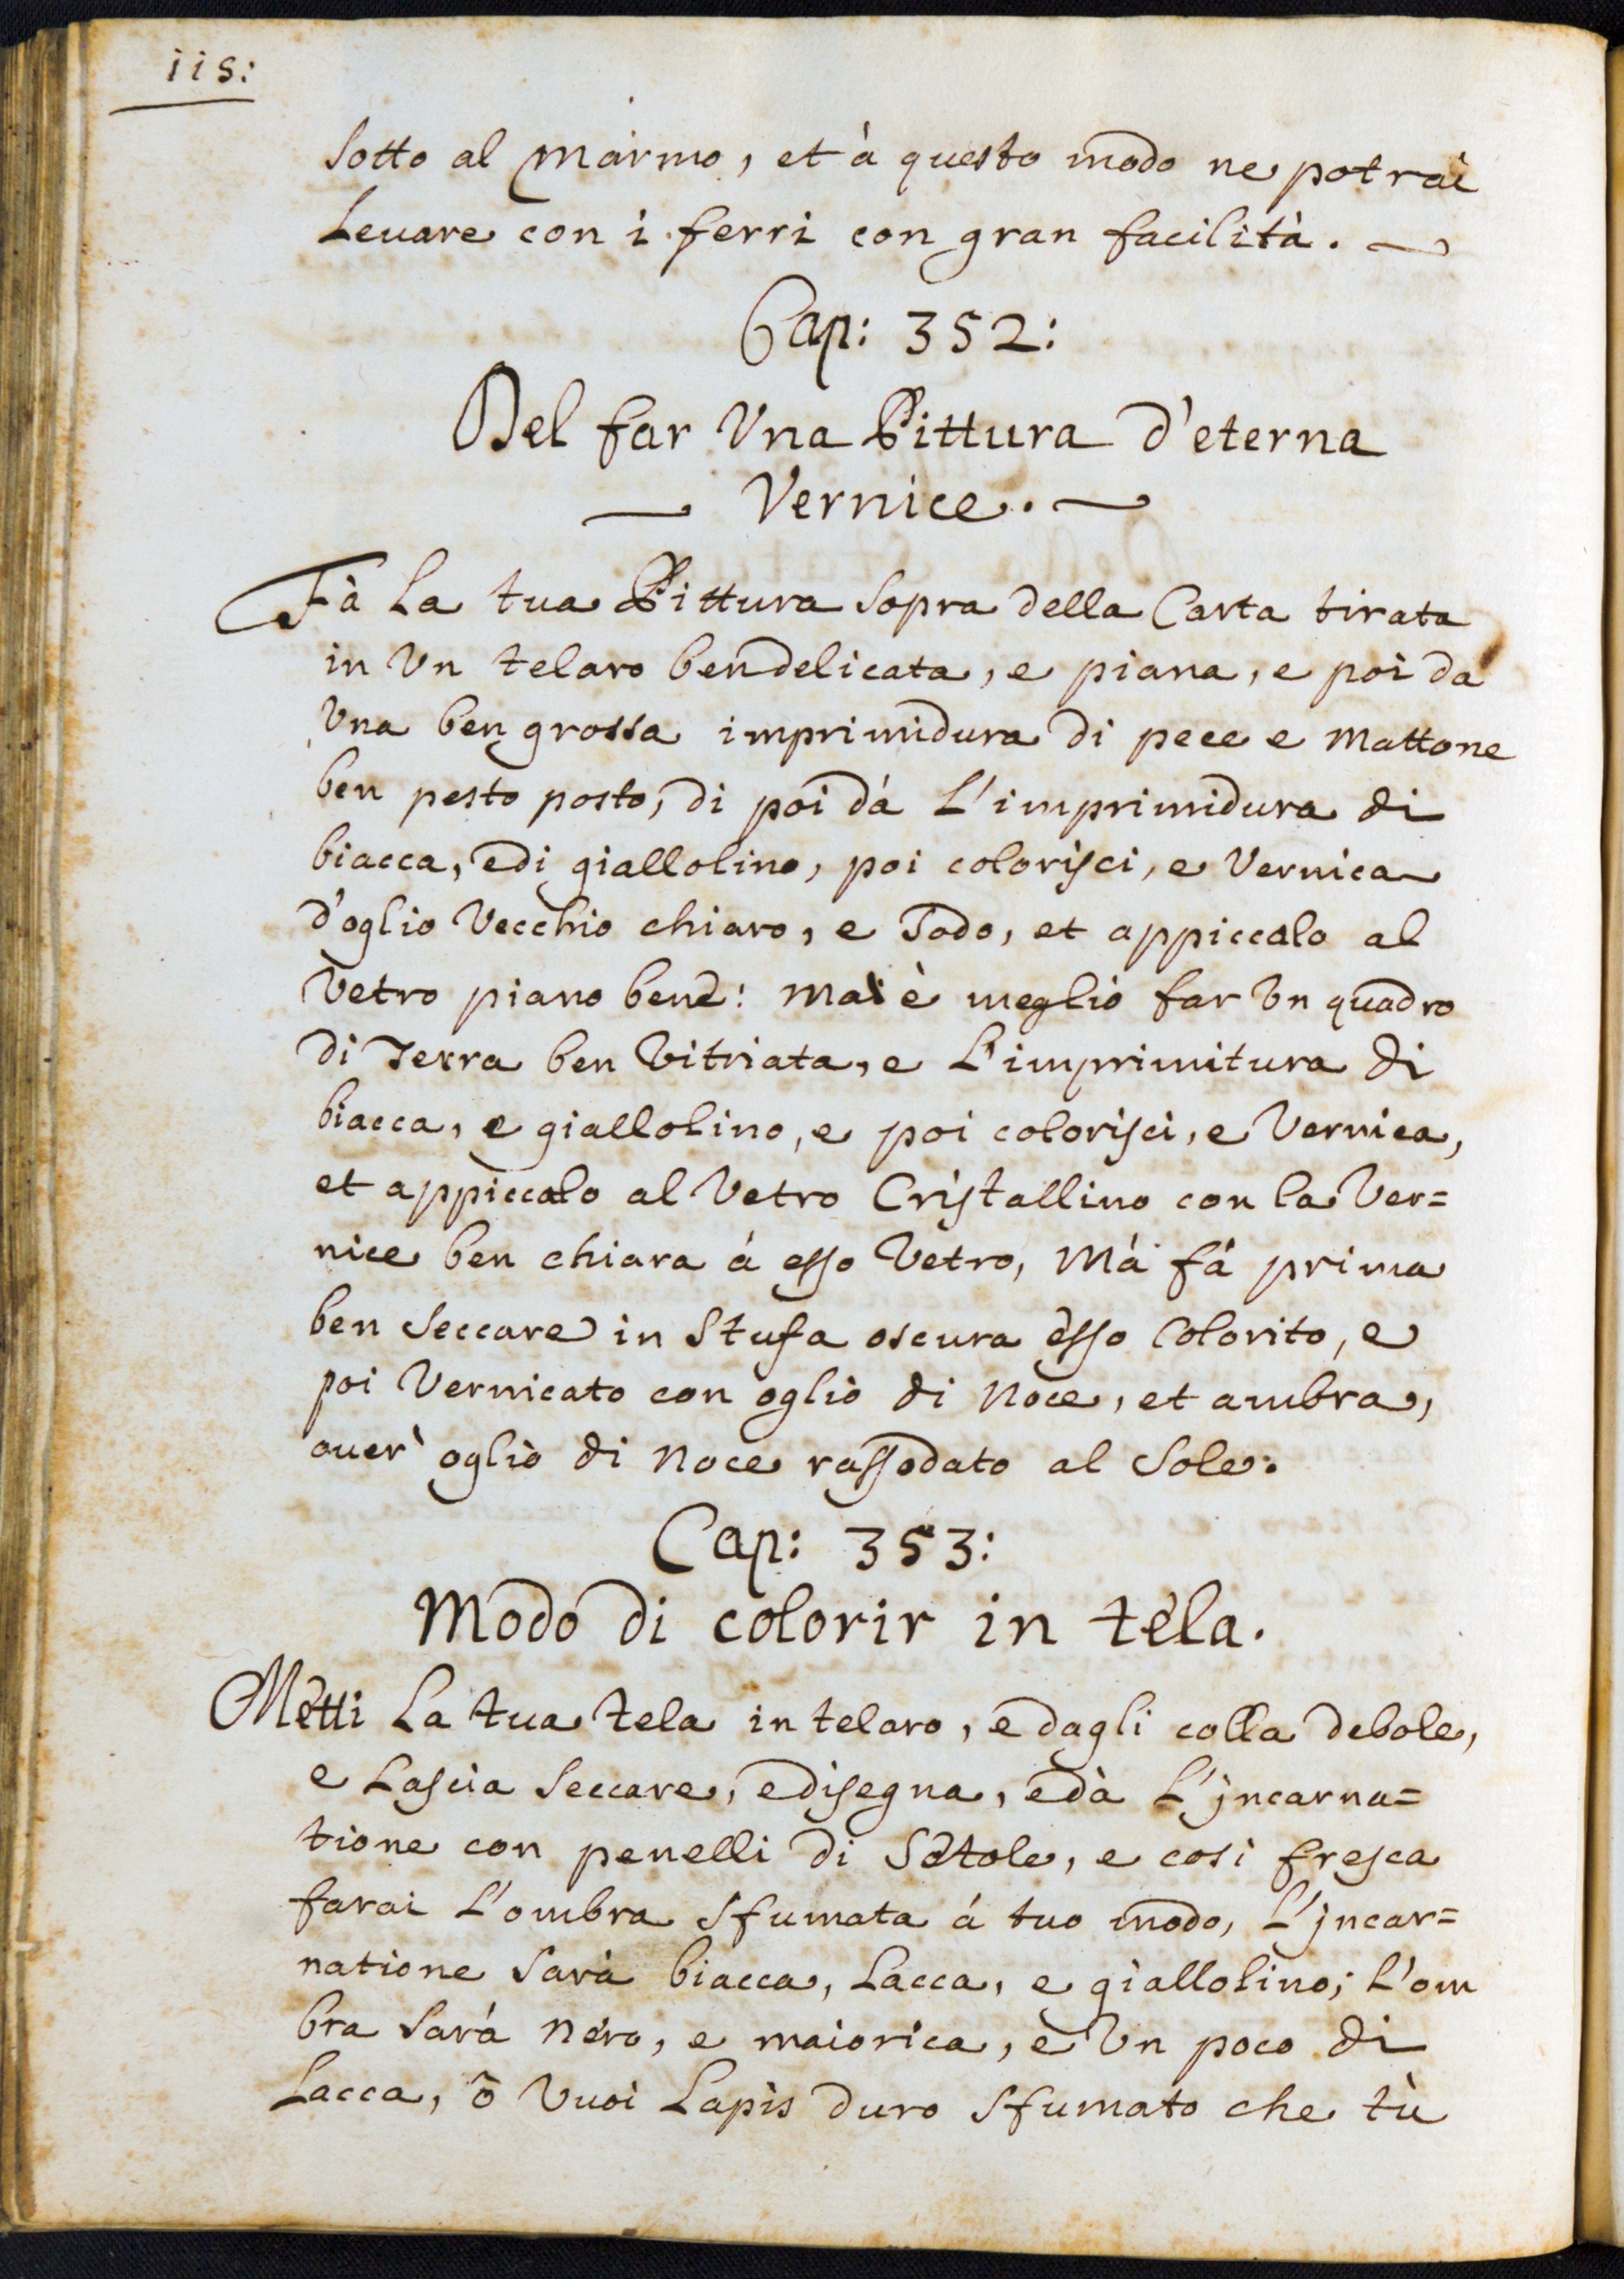 iis:
sotto al Marmo, et à questo modo ne potrai
Leuare con i ferri con gran facilità.
Cap: 352:
Del far Vna Pittura d'eterna
Vernice.
Fà La tua Pittura sopra della Carta tirata
in Vn telaro ben delicata, e piana, e poi da
Vna ben grossa imprimidura di pece e Mattone
ben pesto posto, di poi dà L'imprimidura di
biacca, e di giallolino, poi colorisci, e Vernica
d'oglio Vecchio chiaro, e sodo, et appiccalo al
Vetro piano bene: Mai è meglio far Vn quadro
di Terra ben Vitriata, e L'imprimitura di
biacca, e giallolino, e poi colorisci, e Vernica,
et appiccalo al Vetro Cristallino con la Ver=
nice ben chiara á esso Vetro, Má fá prima
ben seccare in Stufa oscura esso Colorito, e
poi Vernicato con oglio di Noce, et ambra,
ouer' oglio di Noce rassodato al Sole.
Cap: 353:
Modo di colorir in tela.
Metti La tua tela in telaro, e dagli colla debole,
e Lascia seccare, e disegna, e dà L'jncarna=
tione con penelli di Setole, e così fresca
farai L'ombra sfumata á tuo modo, L'jncar=
natione sarà biacca, Lacca, e giallolino; L'om
bra sarà Nero, e maiorica, e Vn poco di
Lacca, ò Vuoi Lapis duro sfumato che tù